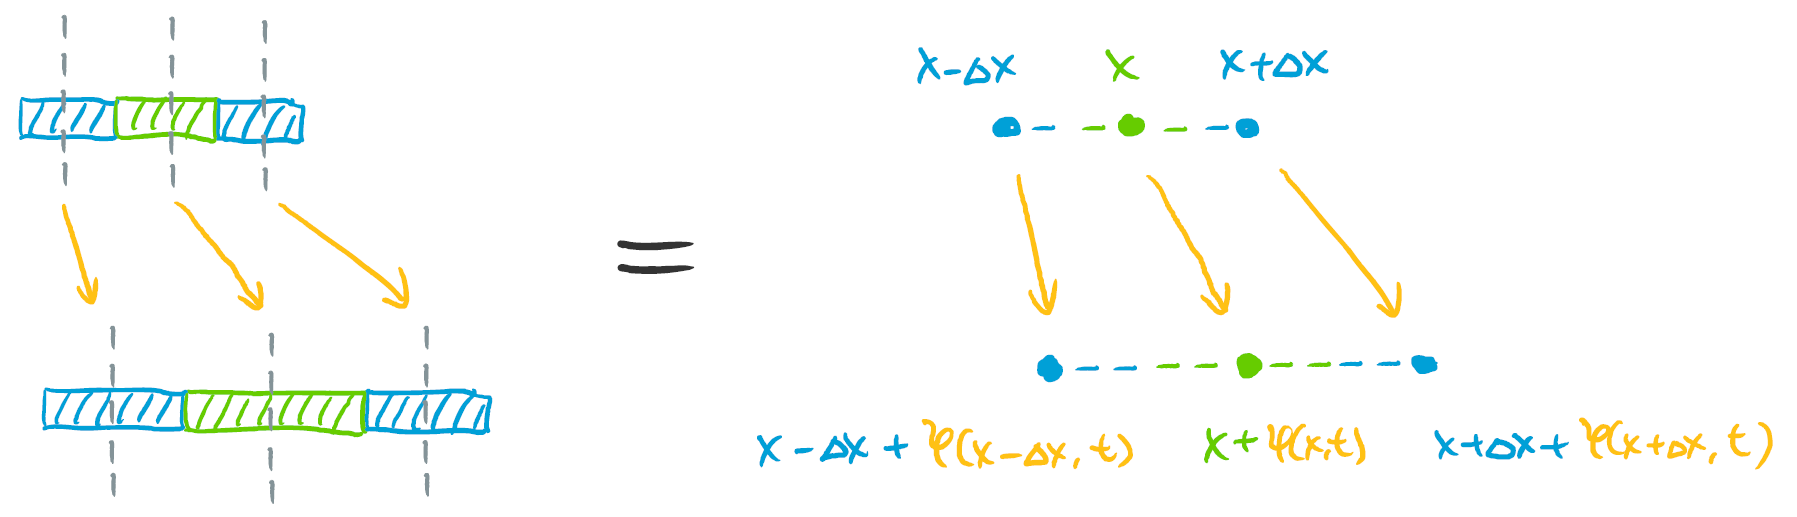 x-Δx x x+Δx
=
x-Δx+φ(x-Δx,t) x+φ(x,t) x+Δx+φ(x+Δx,t)